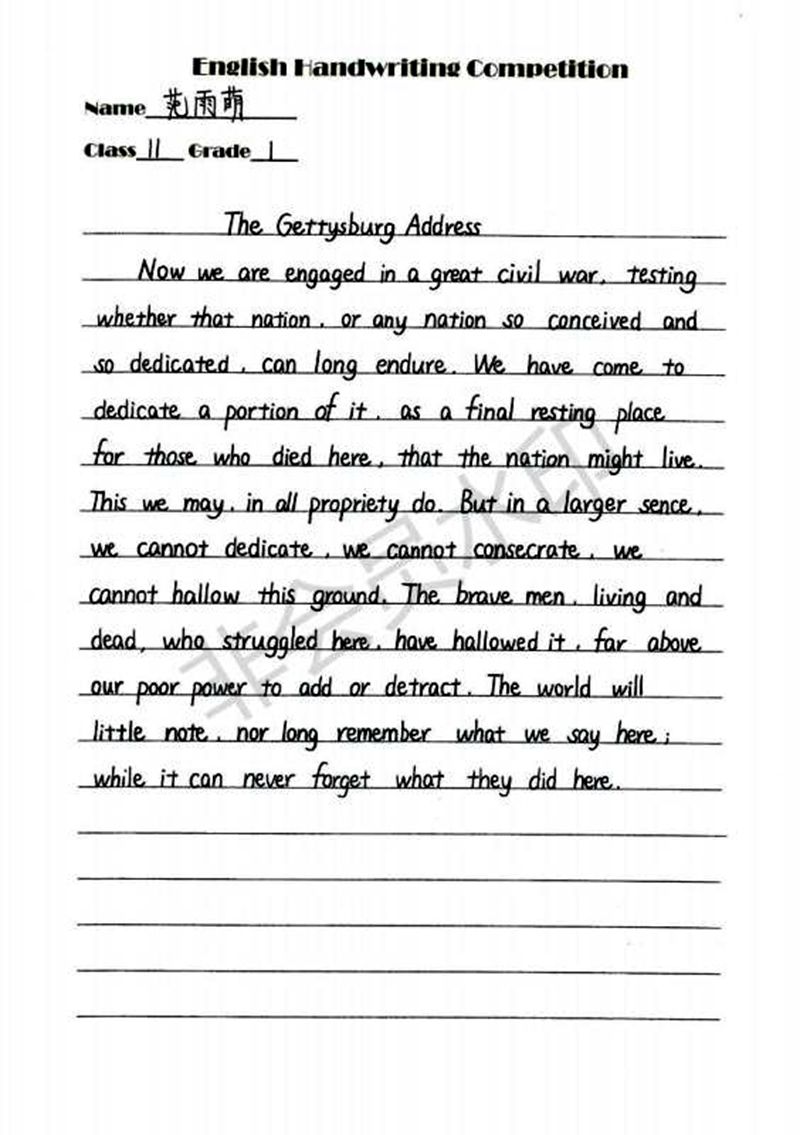 English Handwriting Competition
Name 范雨萌
Class 11 Grade 1
The Gettysburg Address
Now we are engaged in a great civil war, testing
whether that nation, or any nation so conceived and
so dedicated, can long endure. We have come to
dedicate a portion of it, as a final resting place
for those who died here, that the nation might live.
This we may, in all propriety do. But in a larger sence,
we cannot dedicate, we cannot consecrate, we
cannot hallow this ground. The brave men, living and
dead, who struggled here, have hallowed it, far above
our poor power to add or detract. The world will
little note, nor long remember what we say here;
while it can never forget what they did here.
非会员水印